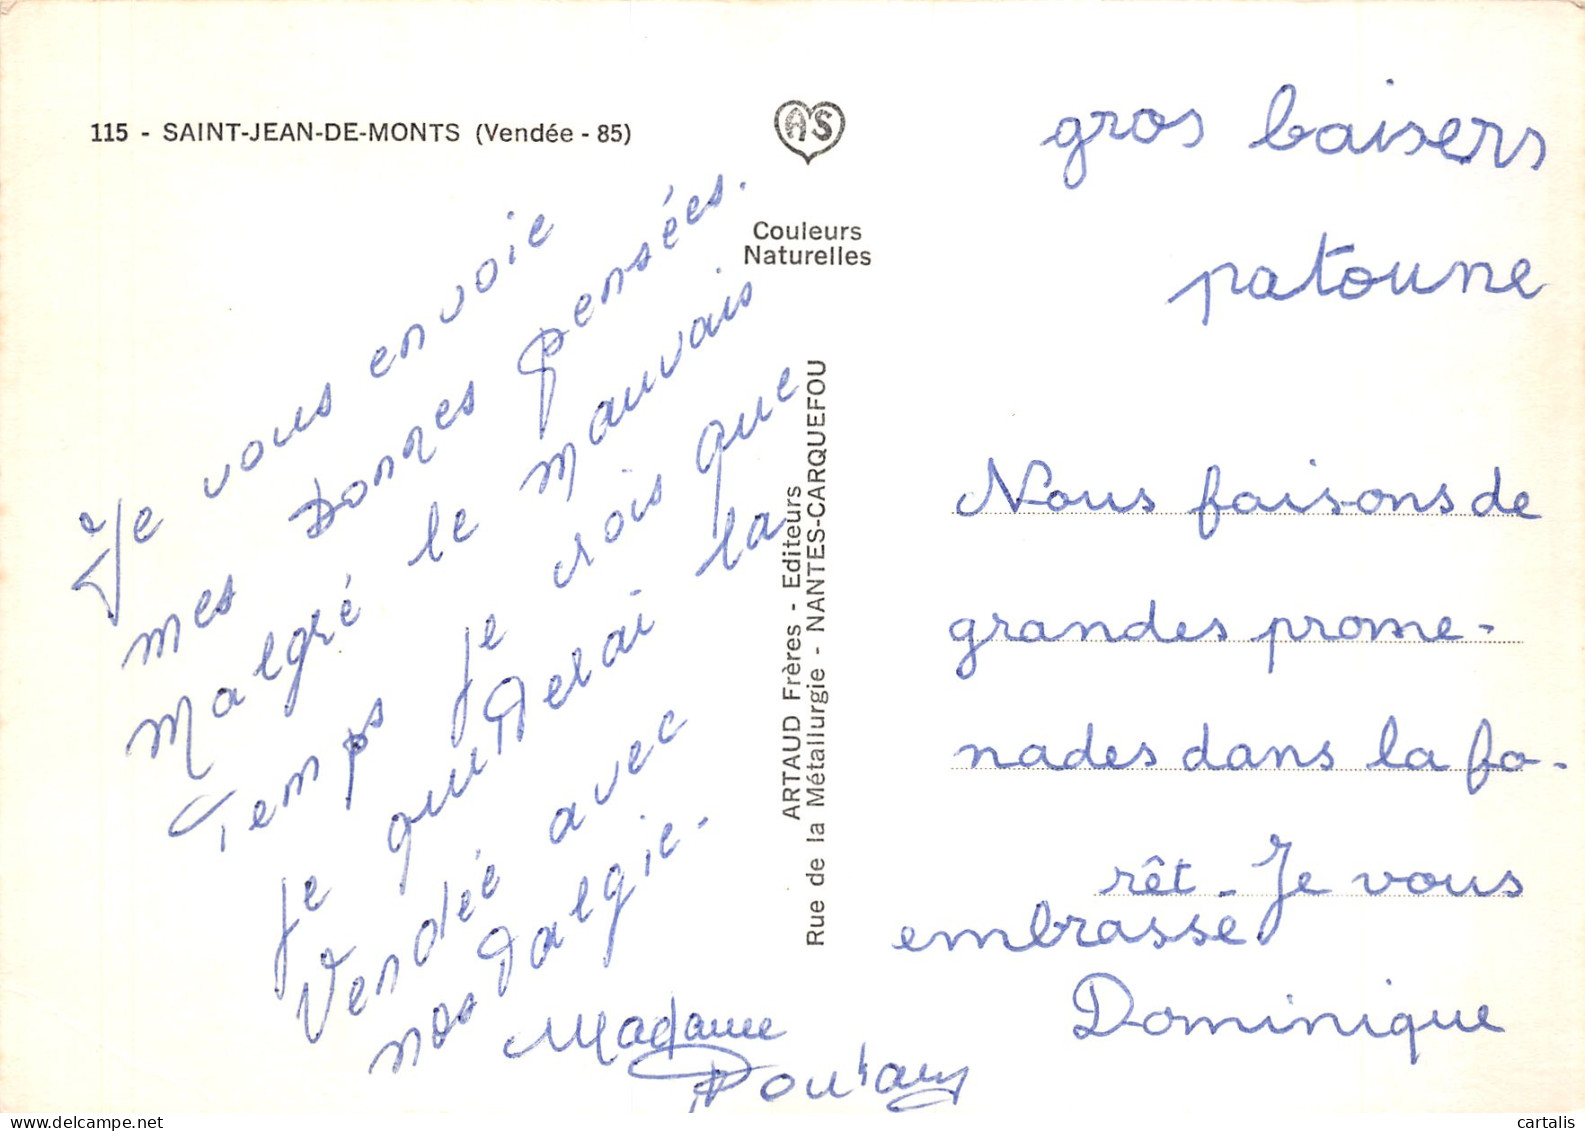 115 - SAINT-JEAN-DE-MONTS (Vendée - 85)
AS
Couleurs
Naturelles
ARTAUD Frères - Editeurs
Rue de la Métallurgie - NANTES-CARQUEFOU
Je vous envoie
mes bonnes pensées.
Malgré le mauvais
Temps je crois que
je quitterai la
Vendée avec
nostalgie.
Madame
gros baisers
patoune
Nous faisons de
grandes prome-
nades dans la fo-
rêt - Je vous
embrasse
Dominique
delcampe.net
cartalis